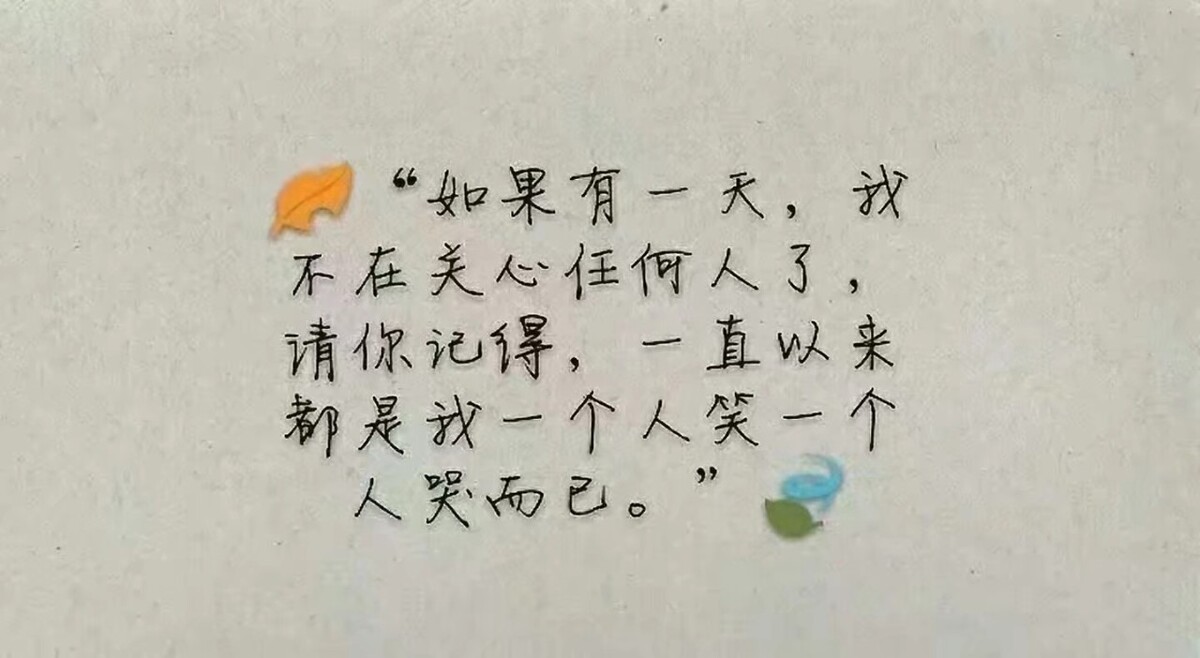 “如果有一天，我
不在关心任何人了，
请你记得，一直以来
都是我一个人笑一个
人哭而已。”